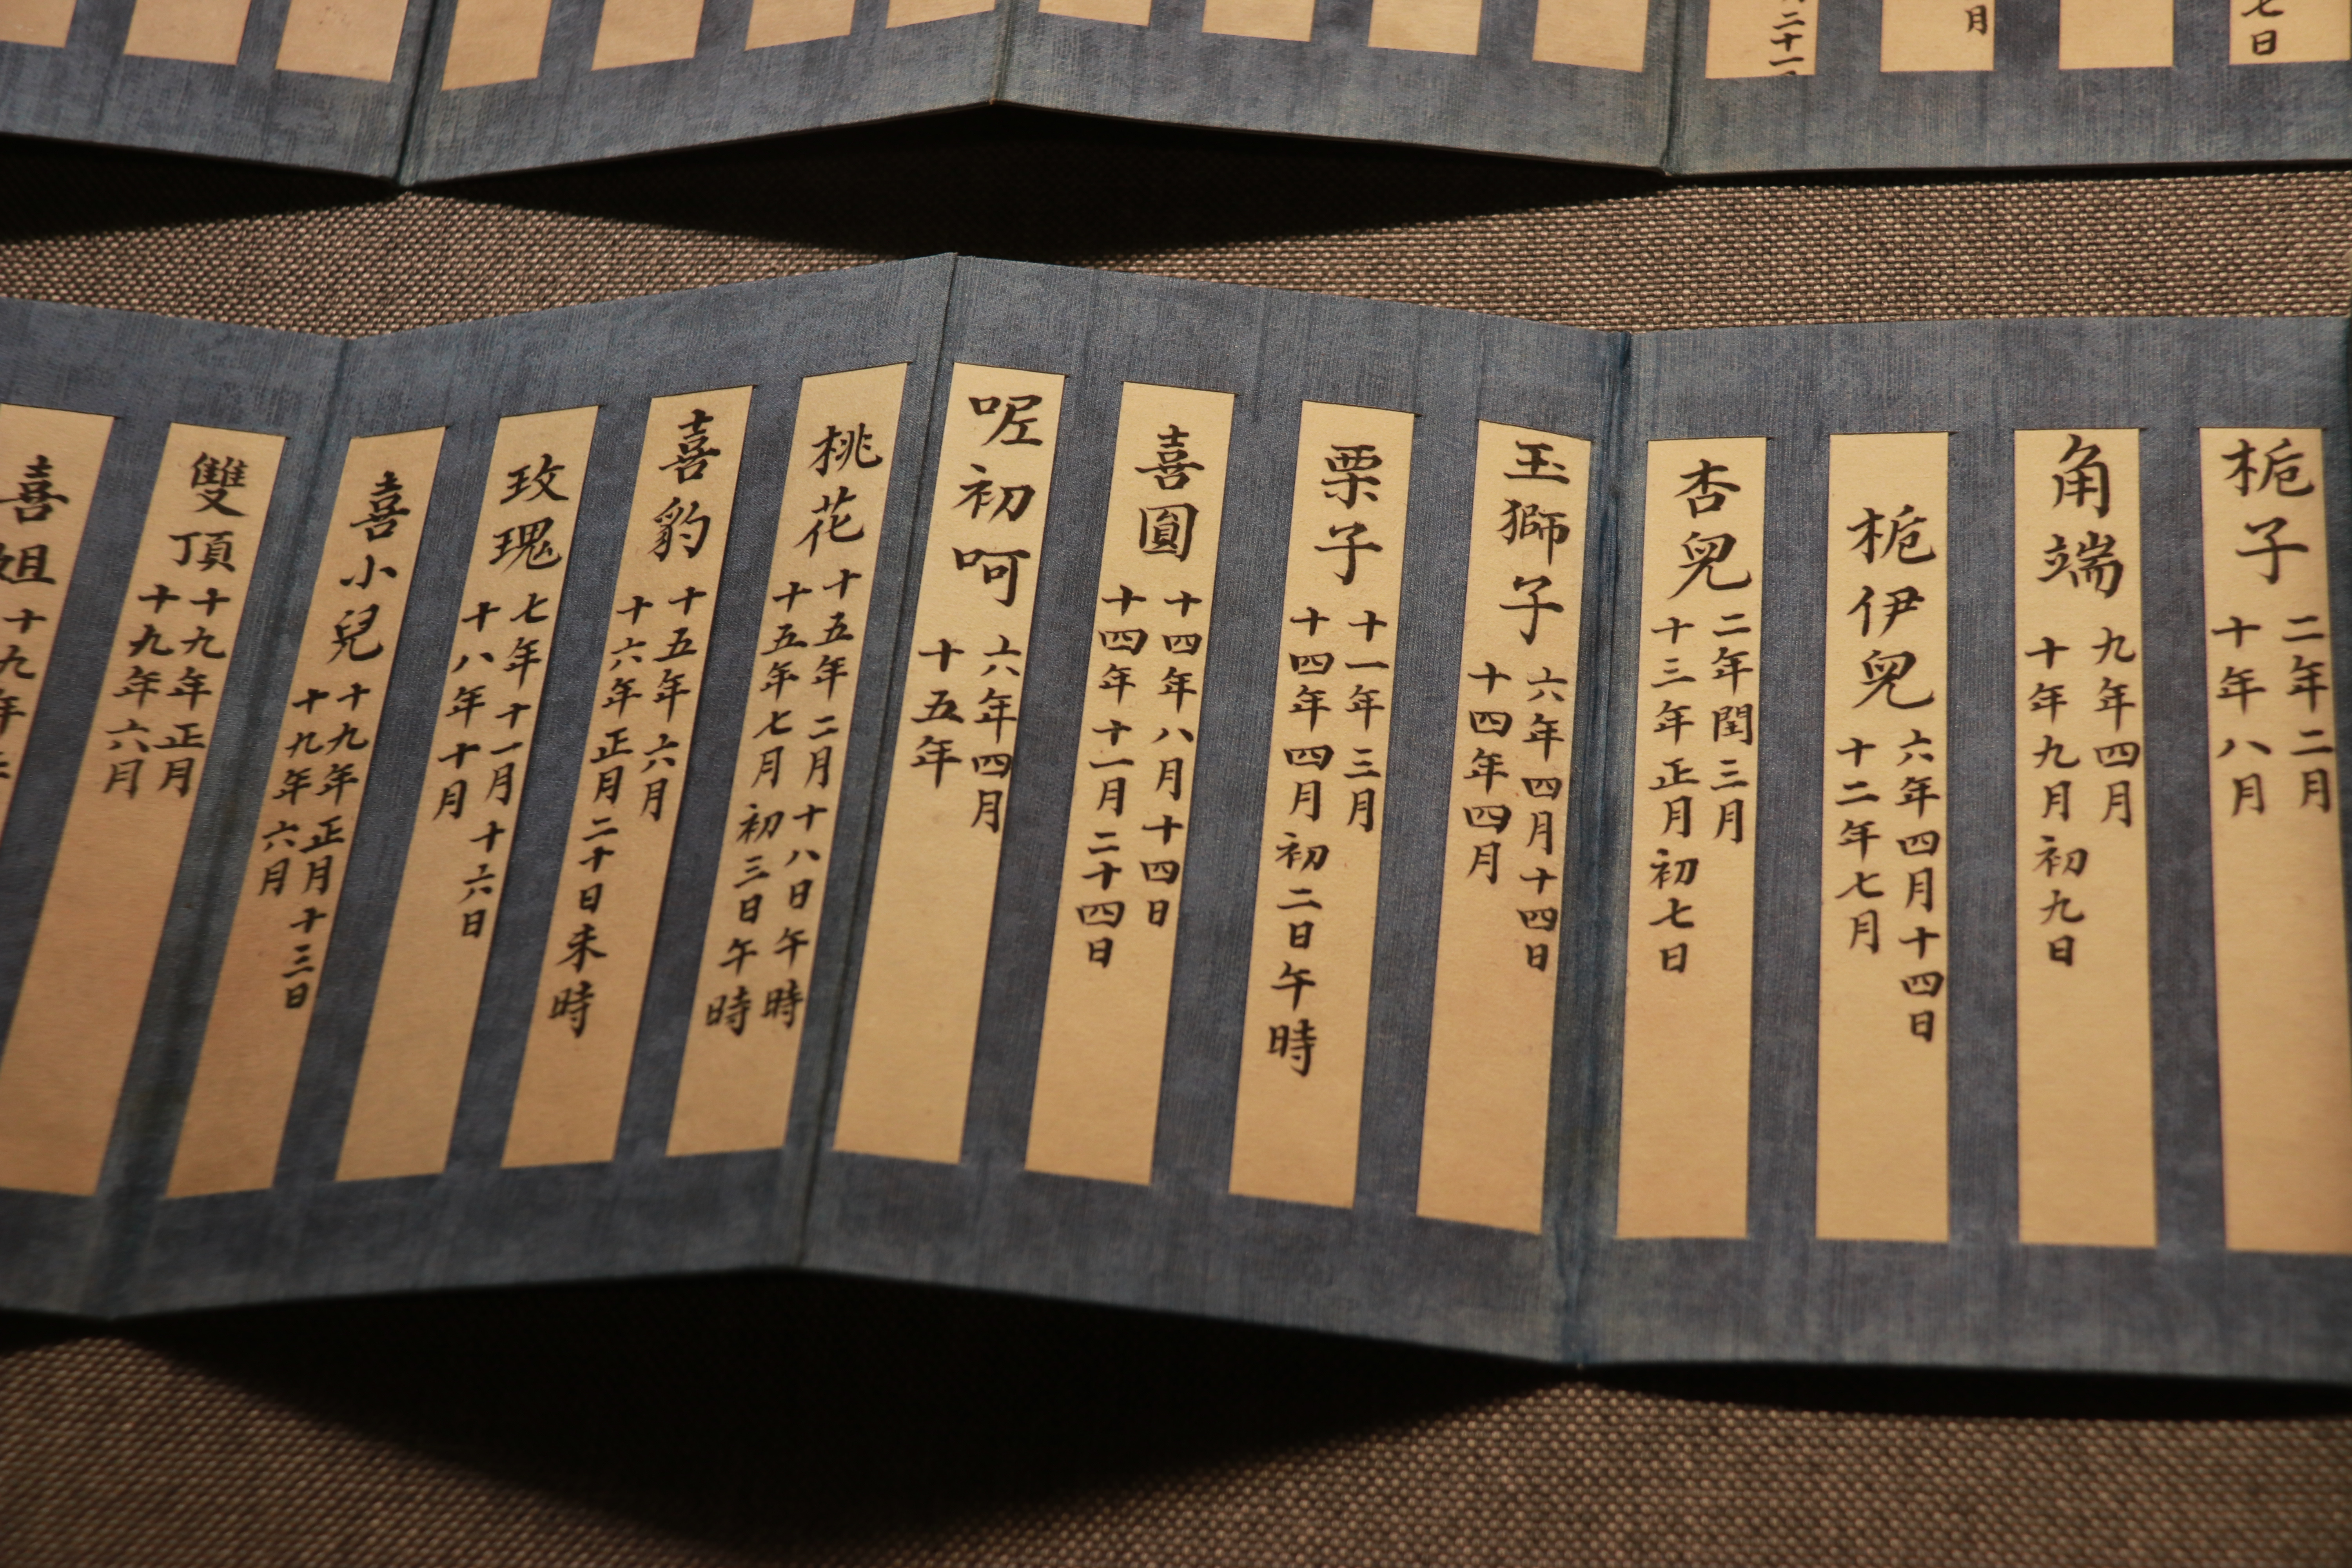 二十一
月
七日
栀子
二年二月
十年八月
角端
九年四月
十年九月初九日
栀伊兒
六年四月十四日
十二年七月
杏兒
二年閏三月
十三年正月初七日
玉獅子
六年四月十四日
十四年四月
栗子
十一年三月
十四年四月初二日午時
喜圓
十四年八月十四日
十四年十一月二十四日
呢初呵
六年四月
十五年
桃花
十五年二月十八日午時
十五年七月初三日午時
喜豹
十五年六月
十六年正月二十日未時
玫瑰
七年十一月十六日
十八年十月
喜小兒
十九年正月十三日
十九年六月
雙頂
十九年正月
十九年六月
喜姐
十九年